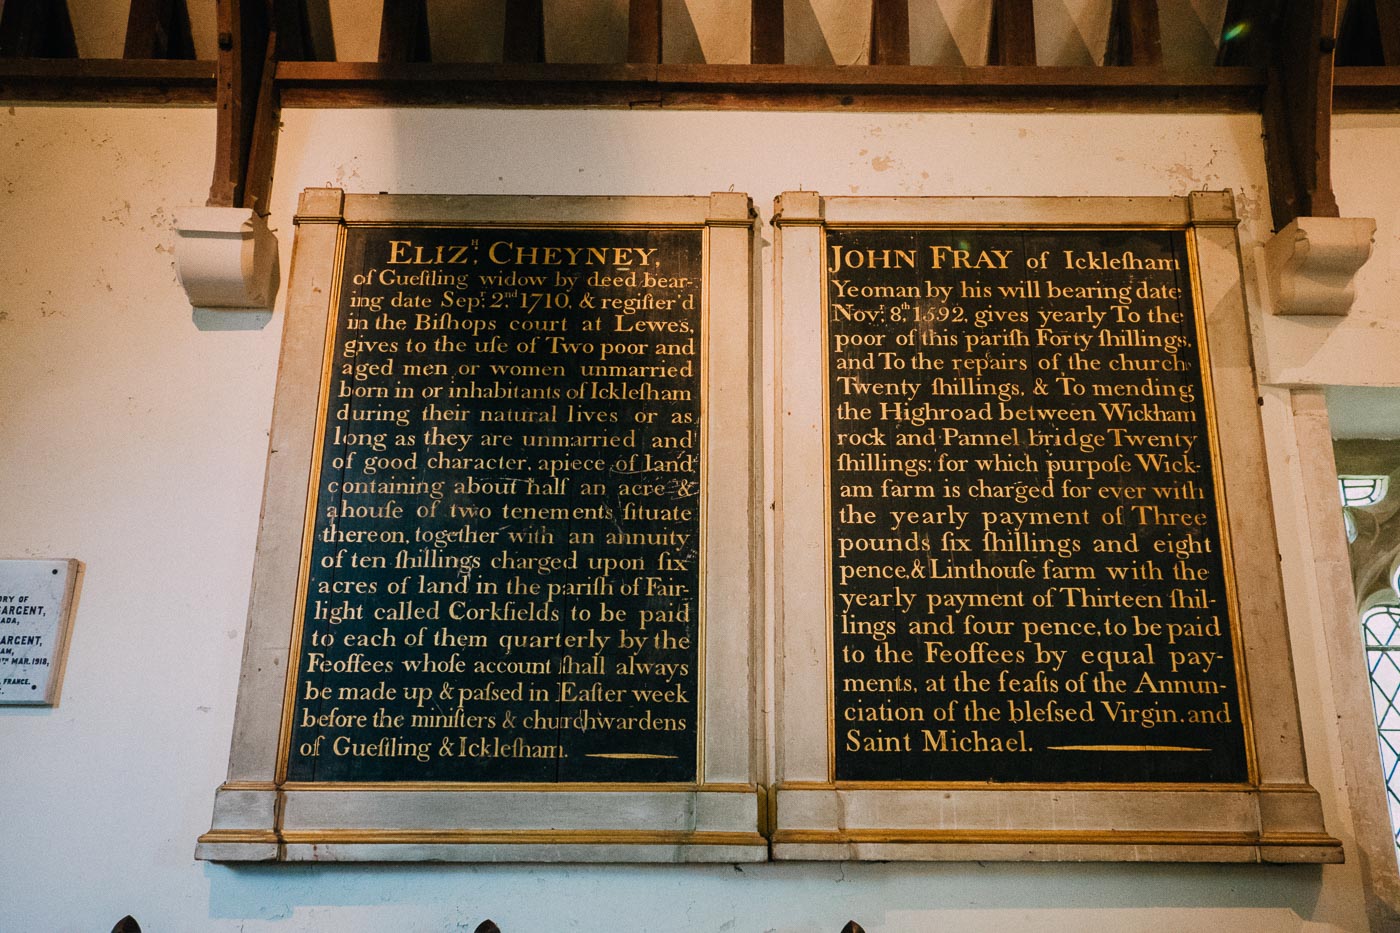 ELIZ.H CHEYNEY,
of Gueſtling widow by deed bear-
ing date Sep.r 2.nd 1710, & regiſter'd
in the Biſhops court at Lewes,
gives to the uſe of Two poor and
aged men or women unmarried
born in or inhabitants of Ickleſham
during their natural lives or as
long as they are unmarried and
of good character, apiece of land,
containing about half an acre &
ahouſe of two tenements ſituate
thereon, together with an annuity
of ten ſhillings charged upon ſix
acres of land in the pariſh of Fair-
light called Corkfields to be paid
to each of them quarterly by the
Feoffees whoſe account ſhall always
be made up & paſsed in Eaſter week
before the miniſters & churchwardens
of Gueſtling & Ickleſham.
JOHN FRAY of Ickleſham
Yeoman by his will bearing date
Nov.r 8.th 1592, gives yearly To the
poor of this pariſh Forty ſhillings,
and To the repairs of the church
Twenty ſhillings, & To mending
the Highroad between Wickham
rock and Pannel bridge Twenty
ſhillings; for which purpoſe Wick-
am farm is charged for ever with
the yearly payment of Three
pounds ſix ſhillings and eight
pence, & Linthouſe farm with the
yearly payment of Thirteen ſhil-
lings and four pence, to be paid
to the Feoffees by equal pay-
ments, at the feaſts of the Annun-
ciation of the bleſsed Virgin, and
Saint Michael.
ORY OF
SARGENT,
ADA,
SARGENT,
AM,
TH MAR. 1918,
FRANCE.